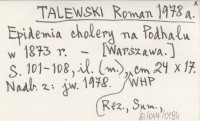 TALEWSKI Roman 1978 a.
Epidemia cholery na Podhalu
w 1873 r. – [Warszawa.]
S. 101–108, il. (m.), cm 24 X 17.
Nadb. z: jw. 1978. WHP
(Rez., Sum.,